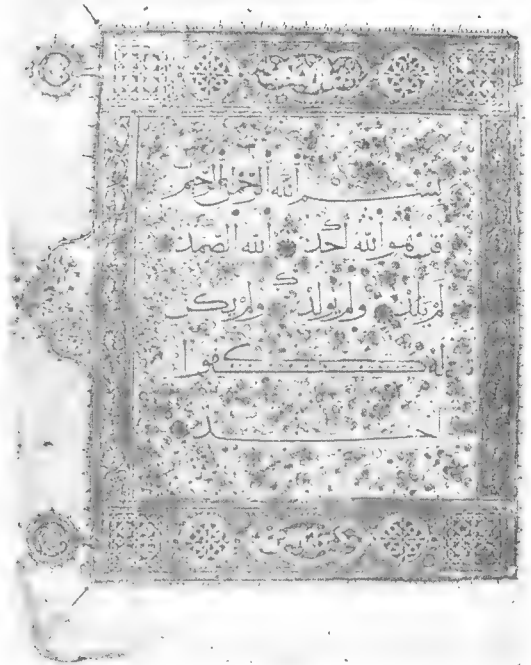 بسم الله الرحمن الرحيم
قل هو الله احد الله الصمد
لم يلد ولم يولد ولم يكن
له كفوا
احد